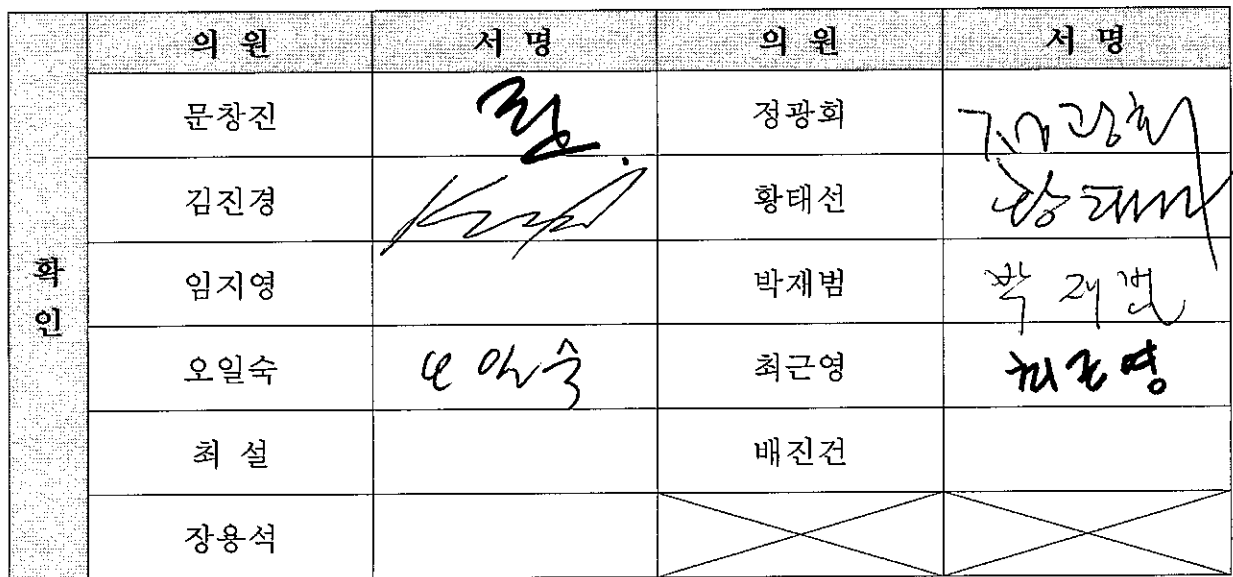 의 원 서 명 의 원 서 명
문창진 정광회 정광회
김진경 황태선 황태선
확 인
임지영 박재범 박재범
오일숙 오일숙 최근영 최근영
최 설 배진건
장용석